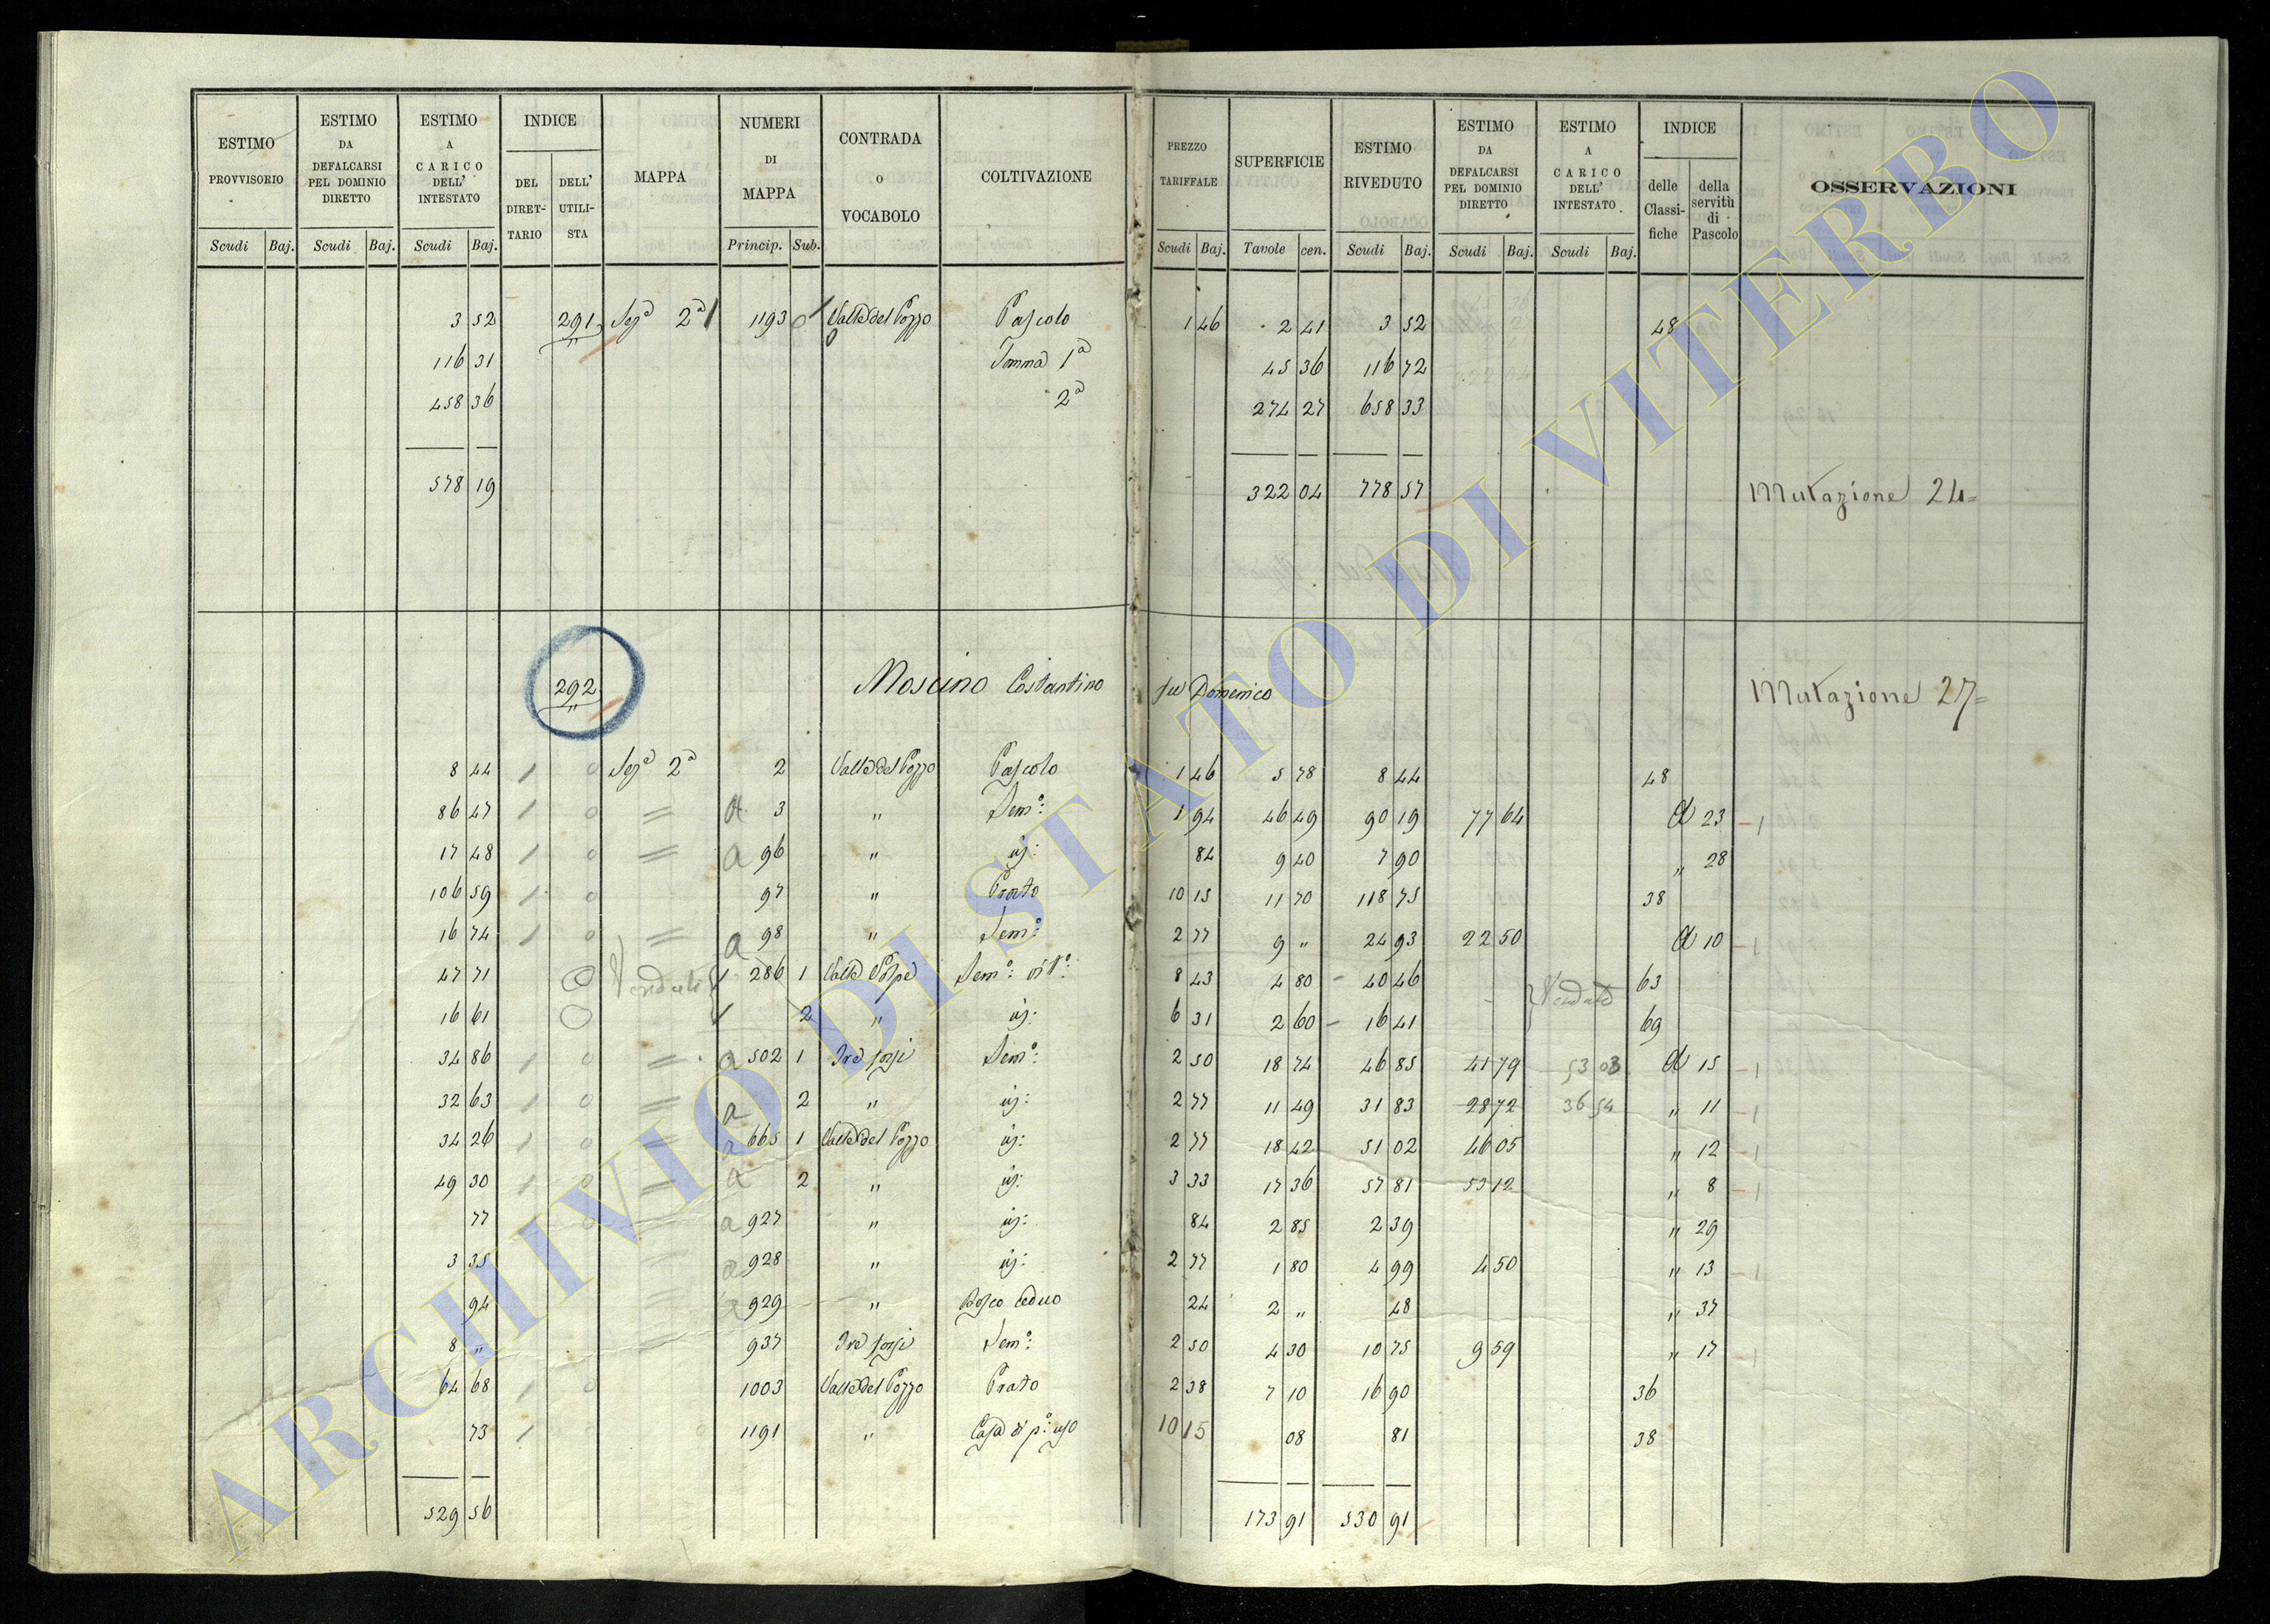 ESTIMO PROVVISORIO | ESTIMO DA DEFALCARSI PEL DOMINIO DIRETTO | ESTIMO A CARICO DELL' INTESTATO | INDICE | MAPPA | NUMERI DI MAPPA | CONTRADA O VOCABOLO | COLTIVAZIONE | PREZZO TARIFFALE | SUPERFICIE | ESTIMO RIVEDUTO | ESTIMO DA DEFALCARSI PEL DOMINIO DIRETTO | ESTIMO A CARICO DELL' INTESTATO | INDICE | OSSERVAZIONI
DEL DIRETTARIO | DELL' UTILISTA | delle Classifiche | della servitù di Pascolo
Scudi | Baj. | Scudi | Baj. | Scudi | Baj. | Princip. | Sub. | Scudi | Baj. | Tavole | cen. | Scudi | Baj. | Scudi | Baj. | Scudi | Baj.
3 52 | 291 | Sezª 2ª | 1193 | Valle del Pozzo | Pascolo | 1 46 | 2 41 | 3 52 | 48
116 31 | Somma 1ª | 45 36 | 116 72
458 36 | 2ª | 274 27 | 658 33
578 19 | 322 04 | 778 57 | Mutazione 24
292 | Moscino Costantino fu Domenico | Mutazione 27
8 44 | 1 | 0 | Sezª 2ª | 2 | Valle del Pozzo | Pascolo | 1 46 | 5 78 | 8 44 | 48
86 47 | 1 | 0 | = | a 3 | " | Semº: | 1 94 | 46 49 | 90 19 | 77 64 | a 23 | -1
17 48 | 1 | 0 | = | a 96 | " | id: | 84 | 9 40 | 7 90 | " 28
106 59 | 1 | 0 | 97 | " | Prato | 10 15 | 11 70 | 118 75 | 38
16 74 | 1 | 0 | = | a 98 | " | Semº: | 2 77 | 9 " | 24 93 | 22 50 | a 10 | -1
47 71 | 0 | Venduti | 286 | 1 | Valle | Semº: vitº: | 8 43 | 4 80 | 40 46 | Venduto | 63
16 61 | 0 | 2 | " | id: | 6 31 | 2 60 | 16 41 | 69
34 86 | 1 | 0 | = | a 502 | 1 | Semº: | 2 50 | 18 74 | 46 85 | 41 79 | 53 03 | a 15 | -1
32 63 | 1 | 0 | = | a | 2 | " | id: | 2 77 | 11 49 | 31 83 | 28 72 | 36 54 | " 11 | -1
34 26 | 1 | 0 | = | a 665 | 1 | Valle del Pozzo | id: | 2 77 | 18 42 | 51 02 | 46 05 | " 12 | -1
49 30 | 1 | 0 | = | a | 2 | " | id: | 3 33 | 17 36 | 57 81 | 53 12 | " 8 | -1
77 | 1 | 0 | = | a 927 | " | id: | 84 | 2 85 | 2 39 | " 29
3 35 | = | a 928 | " | id: | 2 77 | 1 80 | 4 99 | 4 50 | " 13 | -1
94 | = | a 929 | " | Bosco ceduo | 24 | 2 " | 48 | " 37
8 " | 937 | Semº: | 2 50 | 4 30 | 10 75 | 9 59 | " 17 | -1
64 68 | 1 | 0 | 1003 | Valle del Pozzo | Prato | 2 38 | 7 10 | 16 90 | 36
73 | 1 | 1191 | " | Casa di pº: uso | 10 15 | 08 | 81 | 38
529 56 | 173 91 | 530 91
ARCHIVIO DI STATO DI VITERBO